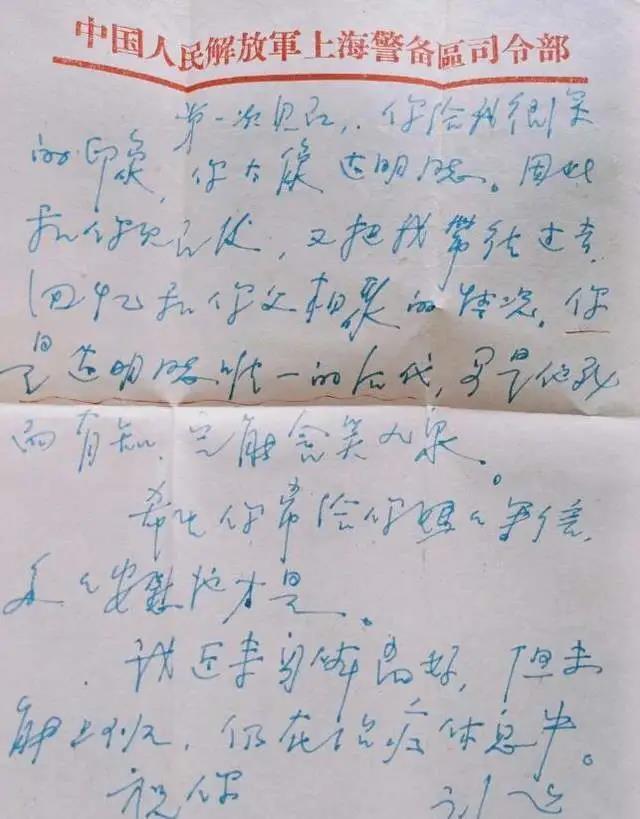 中国人民解放軍上海警备區司令部
第一次见面,你给我很深
的印象,你太像达明。因此
和你见面后,又把我带往过去
回忆和你父相聚的情况。你
是达明唯一的后代,是他死
而有知,定能含笑九泉。
希望你常给你妈妈写信,
多多安慰她才是。
我近来身体尚好,但未
能上班,仍在治疗休息中。
祝你 刘